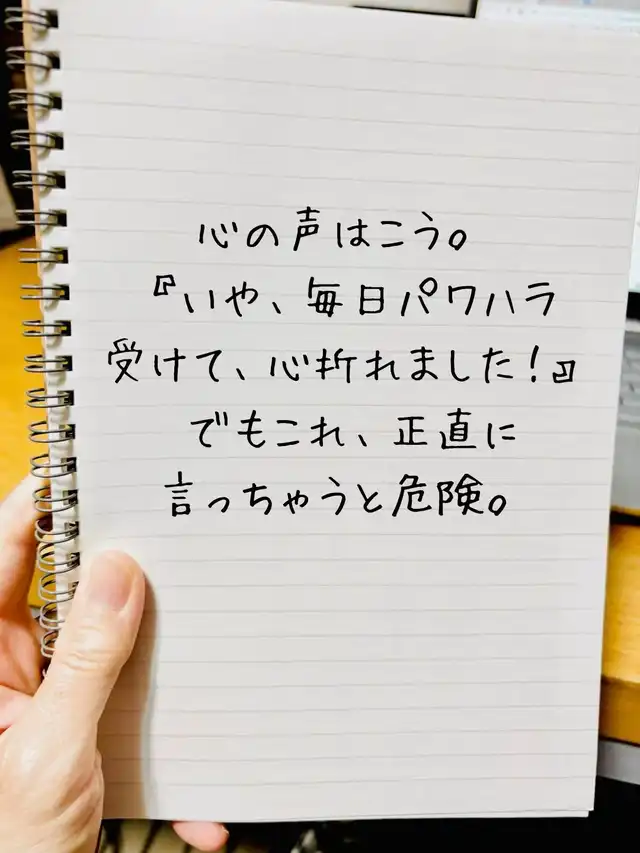 心の声はこう。
『いや、毎日パワハラ
受けて、心折れました！』
でもこれ、正直に
言っちゃうと危険。